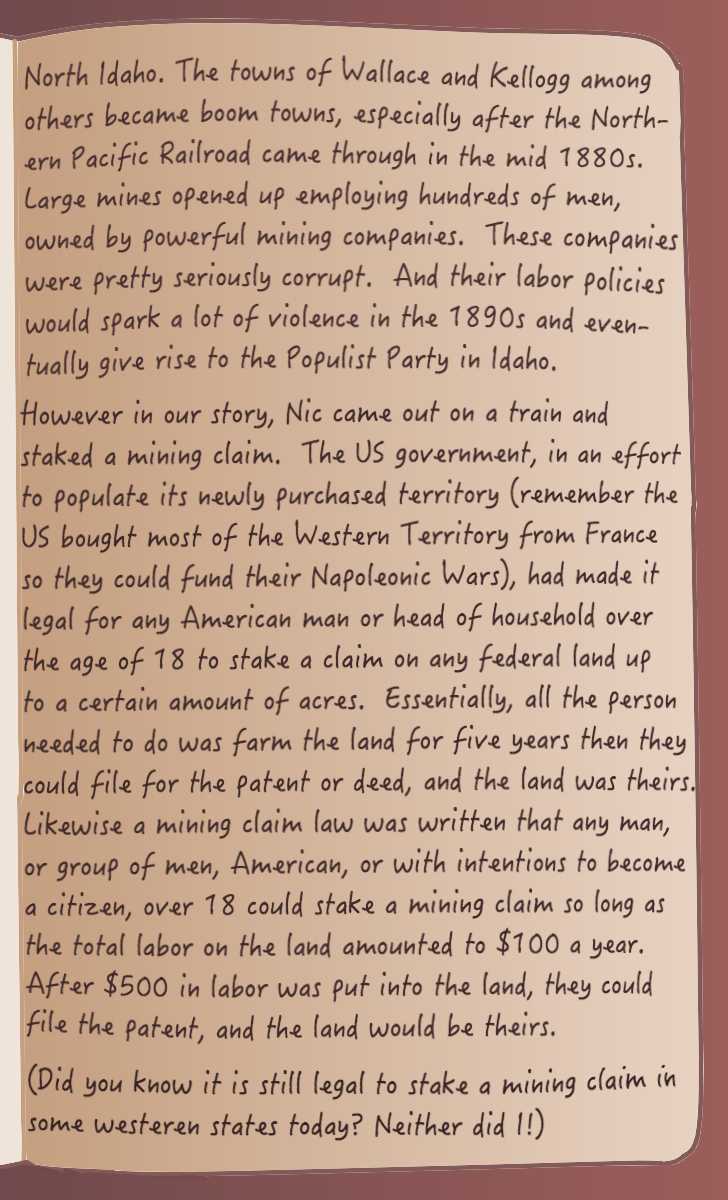 North Idaho. The towns of Wallace and Kellogg among
others became boom towns, especially after the North-
ern Pacific Railroad came through in the mid 1880s.
Large mines opened up employing hundreds of men,
owned by powerful mining companies. These companies
were pretty seriously corrupt. And their labor policies
would spark a lot of violence in the 1890s and even-
tually give rise to the Populist Party in Idaho.
However in our story, Nic came out on a train and
staked a mining claim. The US government, in an effort
to populate its newly purchased territory (remember the
US bought most of the Western Territory from France
so they could fund their Napoleonic Wars), had made it
legal for any American man or head of household over
the age of 18 to stake a claim on any federal land up
to a certain amount of acres. Essentially, all the person
needed to do was farm the land for five years then they
could file for the patent or deed, and the land was theirs.
Likewise a mining claim law was written that any man,
or group of men, American, or with intentions to become
a citizen, over 18 could stake a mining claim so long as
the total labor on the land amounted to $100 a year.
After $500 in labor was put into the land, they could
file the patent, and the land would be theirs.
(Did you know it is still legal to stake a mining claim in
some westeren states today? Neither did I!)